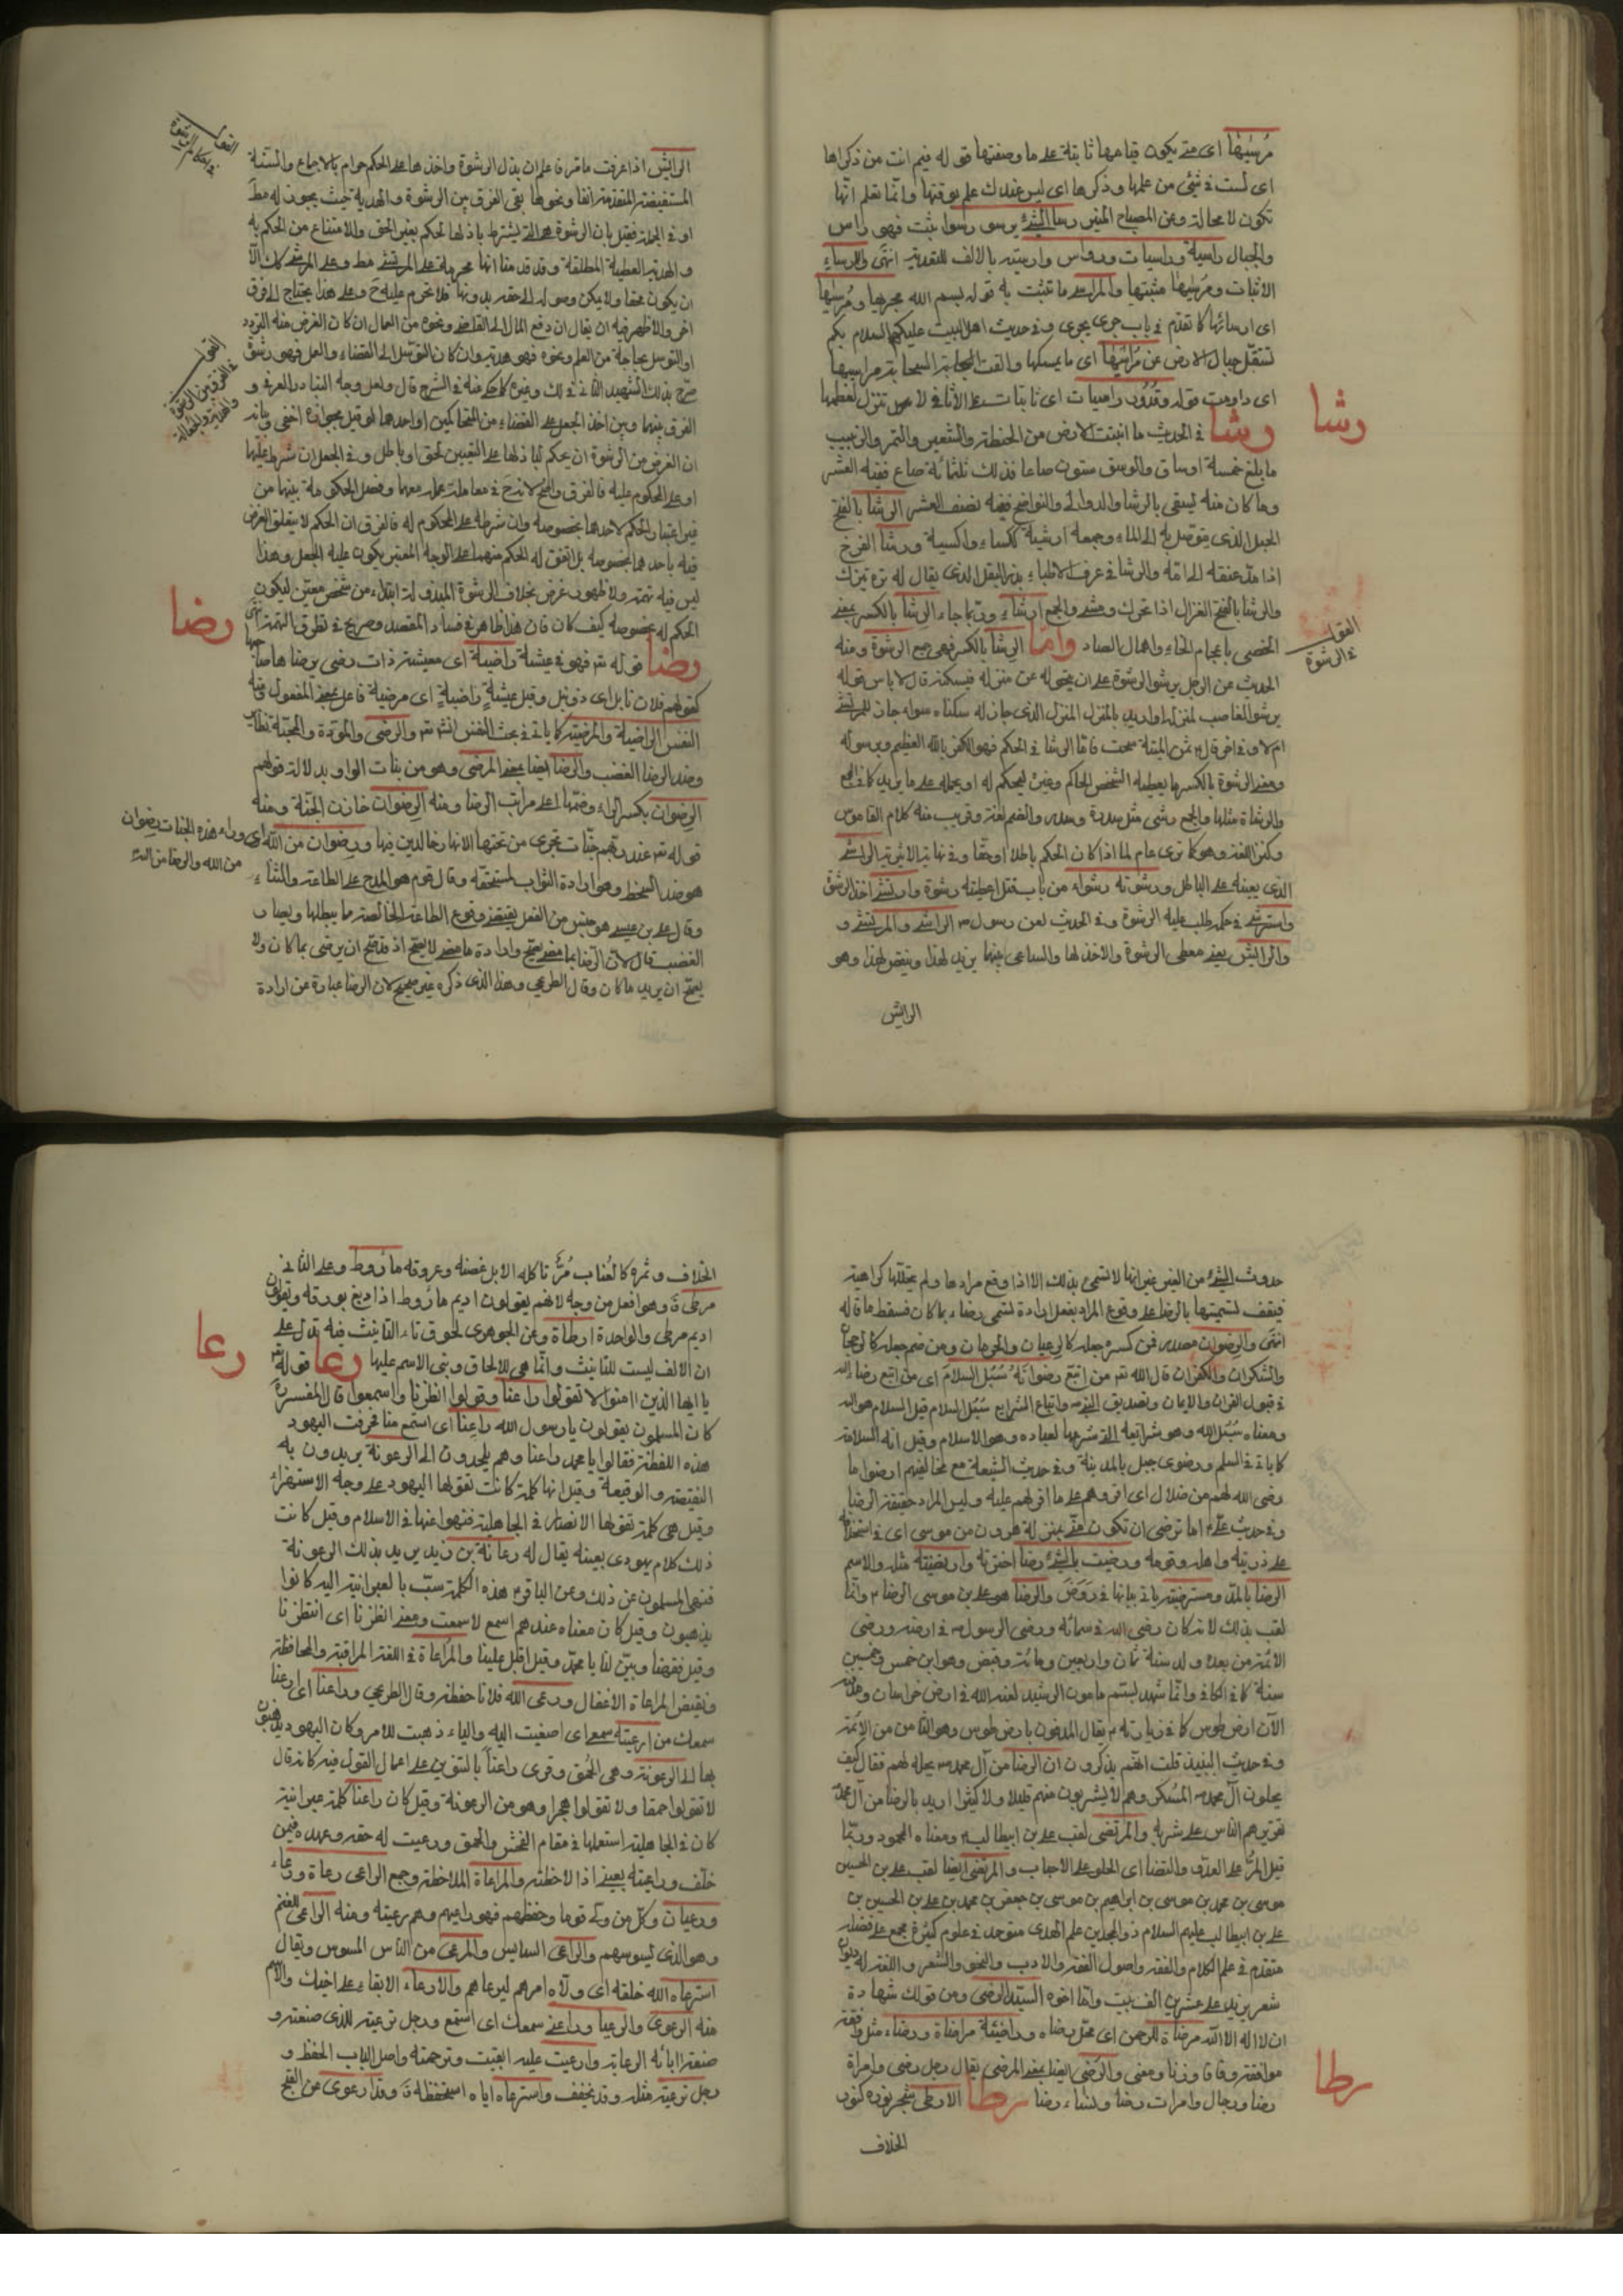 مُرسٰيها اى متى يكون قيامها ثابتة على ما وصفتها قوله فيم انت من ذكراها
اى لست فى شئ من علمها وذكرها اى ليس عندك علم بوقتها وانما تعلم انها
تكون لا محالة وعن المصباح المنير رسا الشئ يرسو رسوا ثبت فهو راس
والجبال راسية وراسيات ورواس وارسيته بالالف للتعدية انتهى والارساء
الاثبات ومرسيها مثبتها والمراد على ما تثبت به قوله بسم الله مجريها ومُرسٰيها
اى ارسائها كما تقدم فى باب جرى يجرى وفى حديث اهل البيت عليهم السلام بكم
تستقل جبال الارض عن مراسيها اى ما يمسكها والقت السحابة مراسيها
اى دامت قوله وقُدُور راسيات اى ثابتات على الاثافى لا تنزل لعظمها
رشا
رشا فى الحديث ما انبتت الارض من الحنطة والشعير والتمر والزبيب
ما بلغ خمسة اوساق والوسق ستون صاعا فذلك ثلثمائة صاع ففيه العشر
وما كان منه يسقى بالرشا والدوالى والنواضح ففيه نصف العشر الرشا بالفتح
الحبل الذى يتوصل به الى الماء وجمعه ارشية ككساء واكسية ورشا الفرخ
اذا مد عنقه الى امه والرشا فى عرف الاطباء بذر البقل الذى يقال له تره تيزك
والرشا بالفتح الغزال اذا تحرك ومشى والجمع ارشاء وربما جاء الرشا بالكسر بمعنى
الخصى باعجام الخاء واهمال الصاد واما الرِشا بالكسر فهى جمع الرشوة ومنه
القول
فى الرشوة
الحديث عن الرجل يرشو الرشوة على ان يتحول عن منزله فيسكنه قال لا باس قوله
يرشو الغاصب لمنزله او اريد بالمنزل المنزل الذى جاز له سكناه سواء جاز للمرتشى
ام لا وفى اخر قال ثمن الميتة سحت فاما الرشا فى الحكم فهو الكفر بالله العظيم وبرسوله
ومعنى الرشوة بالكسر ما يعطيه الشخص الحاكم وغيره ليحكم له او يحمله على ما يريد كما فى المجمع
والرشاة مثلها والجمع رشى مثل سدرة وسدر والضم لغة وقريب منه كلام القاموس
وكنز اللغة وهو كما ترى عام لما اذا كان الحكم باطلا او حقا وفى نهاية الاثيرية الراشى
الذى يعينه على الباطل ورشوته رشوا من باب قتل اعطيته رشوة وارتشى اخذ الرشوة
واسترشى فى حكمه طلب عليه الرشوة وفى الحديث لعن رسول الله الراشى والمرتشى و
والرايش يعنى معطى الرشوة والاخذ لها والساعى بينهما يزيد لهذا وينقص لهذا وهو
الرايش
الرايش اذا عرفت ما مر فاعلم ان بذل الرشوة واخذها على الحكم حرام بالاجماع والسنة
المستفيضة المتقدمة انفا ونحوها بقى الفرق بين الرشوة والهدية حيث يجوز له مط
او فى الجملة فقيل بان الرشوة هى التى يشترط باذلها الحكم بغير الحق والامتناع من الحكم به
والهدية العطية المطلقة وقد قدمنا انها محرمة على المرتشى مط وعلى المرشى كك الا
ان يكون محقا ولا يمكن وصوله الى حقه بدونها فلا تحرم عليه ح وعلى هذا يحتاج الى فرق
اخر والاظهر فيه ان يقال ان دفع المال الى القاضى ونحوه من العمال ان كان الغرض منه التودد
او التوسل لحاجة من العلم ونحوه فهو هدية وان كان التوسل الى القضاء والعمل فهو رشوة
القول
فى الفرق بين الرشوة
والهدية والجعالة
صرح بذلك الشهيد الثانى فى لك وغيره كما حكى عنه فى الشرح قال ولعل وجه التبادر العرفى و
الفرق بينها وبين اخذ الجعل على القضاء من المتحاكمين او احدهما لو قيل بجوازه اخفى وبانه
ان الغرض من الرشوة ان يحكم لباذلها على التعيين بحق او باطل وفى الجعل ان شرط عليهما
او على المحكوم عليه فالفرق واضح
من غير اعتبار الحكم لاحدهما بخصوصه وان شرطه على المحكوم له فالفرق ان الحكم لا يتعلق الغرض
فيه باحدهما بخصوصه بل من اتفق له الحكم منهما على الوجه المعتبر يكون عليه الجعل وهذا
ليس فيه تهمة ولا ظهور غرض بخلاف الرشوة المبذولة ابتداء من شخص معين ليكون
رضا
الحكم له بخصوصه كيف كان فان هذا ظاهر فى فساد المقصد وصريح فى تطرق التهمة انتهى
رضا قوله تم فهو فى عيشة راضية اى معيشة ذات رضى يرضاها صاحبها
كقولهم فلان نابل اى ذو نبل وقيل عيشةٍ راضيةٍ اى مرضية فاعل بمعنى المفعول وفيه
النفس الراضية والمرضية كما ياتى فى بحث النفس انش تم والرضى والمودة والمحبة نظائر
وضد الرضا الغضب والرضا ايضا بمعنى المرضى وهو من بنات الواو بدلالة قولهم
الرضوان بكسر الراء وضمها اعلى مراتب الرضا ومنه الرضوان خازن الجنة ومنه
قوله تم عند ربهم جنات تجرى من تحتها الانهار خالدين فيها ورضوان من الله اى وراء هذه الجنات رضوان
من الله والرضا من الله
هو ضد السخط وهو ارادة الثواب لمستحقه وقال قوم هو المدح على الطاعة والثناء
وقال على بن عيسى هو جنس من الفعل يقتضى وقوع الطاعة الخالصة مما يبطلها ويضاد
الغضب قال لان الرضا بما مضى يصح وارادة ما مضى لا يصح اذ قد يصح ان يرضى بما كان ولا
يصح ان يريد ما كان وقال الطريحى وهذا الذى ذكره غير صحيح لان الرضا عبارة عن ارادة
حدوث الشئ من الغير غير انها لا تسمى بذلك الا اذا وقع مرادها ولم يتخللها كراهية
فيقف تسميتها بالرضا على وقوع المراد بفعل ارادة تسمى رضاء بما كان فسقط ما قاله
انتهى والرضوان مصدر فمن كسره جعله كالرعيان والحرمان ومن ضم جعله كالرجحان
والشكران والكفران قال الله تم من اتبع رضوانه سُبُل السلام اى من اتبع رضاء الله
فى قبول القران والايمان وتصديق النبى واتباع الشرايع سبل السلام قيل السلام هو الله
ومعناه سبل الله وهو شرائعه التى شرعها لعباده وهو الاسلام وقيل انه السلامة
كما ياتى فى السلم ورضوى جبل بالمدينة وفى حديث الشيعة مع مخالفيهم ارضوا ما
رضى الله لهم من ضلال اى اقروهم على ما اقرهم عليه وليس المراد حقيقة الرضا
وفى حديث على اما ترضى ان تكون منى بمنزلة هرون من موسى اى فى استخلافه
على ذريته واهله وقومه ورضيت بالشئ رضا اخترته وارتضيته مثله والاسم
الرضا بالمد ومسترضية ياتى بيانها فى روض والرضا هو على بن موسى الرضا وانما
لقب بذلك لانه كان رضى الله فى سمائه ورضى الرسول فى ارضه ورضى
الائمة من بعده ولد سنة ثمان واربعين ومائة وقبض وهو ابن خمس وخمسين
سنة كما فى الكافى وانما شهد بستم مامون الرشيد لعنه الله فى ارض خراسان
الآن ارض طوس كما فى زيارته يقال المدفون بارض طوس وهو الثامن من الائمة
وفى حديث النبيذ قلت انهم يذكرون ان الرضا من آل محمد يحله لهم فقال كيف
يحلون آل محمد المُسكر وهم لا يشربون منه قليلا ولا كثيرا اريد بالرضا من آل محمد
هم الناس على شربه والمرتضى لقب على بن ابيطالب ومعناه المحمود وربما
قيل المر على العدو والتضا اى الحلو على الاحباب والمرتضى ايضا لقب على بن الحسين
موسى بن محمد بن موسى بن ابراهيم بن موسى بن جعفر بن محمد بن على بن الحسين بن
على بن ابيطالب عليهم السلام ذو المجدين علم الهدى متوحد فى علوم كثيرة مجمع على فضله
متقدم فى علم الكلام والفقه واصول الفقه والادب والنحو والشعر واللغة له ديوان
شعر يزيد على عشرين الف بيت وانما اخوه السيد الرضى ومن قولك شهادة
ان لا اله الا الله مرضاة للرحمن اى محل رضاه وراضيته مراضاة ورضاء مثل وافقته
موافقة ووفاقا وزنا ومعنى والرضى ايضا بمعنى المرضى يقال رجل رضى وامراة
رطا
رضا ورجال وامرات رضا ونساء رضا رطا الارطى شجر نوره كنور
الخلاف
الخلاف وثمره كالعناب مُرّ تاكله الابل غضه وعروقه ماروط وعلى الثانى
مرطى ة وهو افعل من وجه لانهم يقولون اديم ماروط اذا دبغ بورقه ويقولون
اديم مرطى والواحدة ارطاة وعن الجوهرى لحوق تاء التانيث فيه تدل على
رعا
ان الالف ليست للتانيث وانما هى للالحاق وبنى الاسم عليها رعا قوله تم
يا ايها الذين امنوا لا تقولوا راعنا وقولوا انظرنا واسمعوا قال المفسرة
كان المسلمون يقولون يا رسول الله راعِنا اى استمع منا فحرفت اليهود
هذه اللفظة فقالوا يا محمد راعنا وهم يلحدون الى الرعونة يريدون به
النقيصة والوقيعة وقيل انها كلمة كانت تقولها اليهود على وجه الاستهزاء
وقيل هى كلمة تقولها الانصار فى الجاهلية فنهوا عنها فى الاسلام وقيل كانت
ذلك كلام يهودى بعينه يقال له رعانة بن زيد يريد بذلك الرعونة
فنهى المسلمون عن ذلك وعن الباقر هذه الكلمة سبّ بالعبرانية اليه كانوا
يذهبون وقيل كان معناه عندهم اسمع لا سمعت ومعنى انظرنا اى انتظرنا
وقيل فقهنا وبيّن لنا يا محمد وقيل اقبل علينا والمراعاة فى اللغة المراقبة والمحافظة
ونقيض المراعاة الاغفال ورعى الله فلانا حفظه وقال الطريحى وراعنا اى ارعنا
سمعك من ارعيته سمعى اى اصغيت اليه والياء ذهبت للامر وكان اليهود يذهبون
بها الى الرعونة وهى الحُمق وقرى راعناً بالتنوين على اعمال القول فيه كانه قال
لا تقولوا حمقا ولا تقولوا هجرا وهو من الرعونة وقيل كان راعنا كلمة عبرانية
كان فى الجاهلية استعملها فى مقام الفحش والحمق ورعيت له حقه وعهده فيمن
خلّف وراعيته بعينى اذا لاحظته والمراعاة الملاحظة وجمع الراعى رعاة ورعاء
ورعيان وكل من ولى قوما وحفظهم فهو راعيهم وهم رعيته ومنه الراعى للغنم
وهو الذى يسوسهم والراعى السايس والمرعى من الناس المسوس ويقال
استرعاه الله خلقه اى ولاه امرهم ليرعاهم والارعاء الابقاء على اخيك والاسم
منه الرعوى والرعيا وراعنى سمعك اى استمع ورجل ترعية للذى صنعته و
صنعة ابائه الرعاية وارعيت عليه ابقيت وترحمته واصل الباب الحفظ و
رجل ترعية مثله وقد يخفف واسترعاه اياه استحفظه ة وقد ارعوى عن القبح